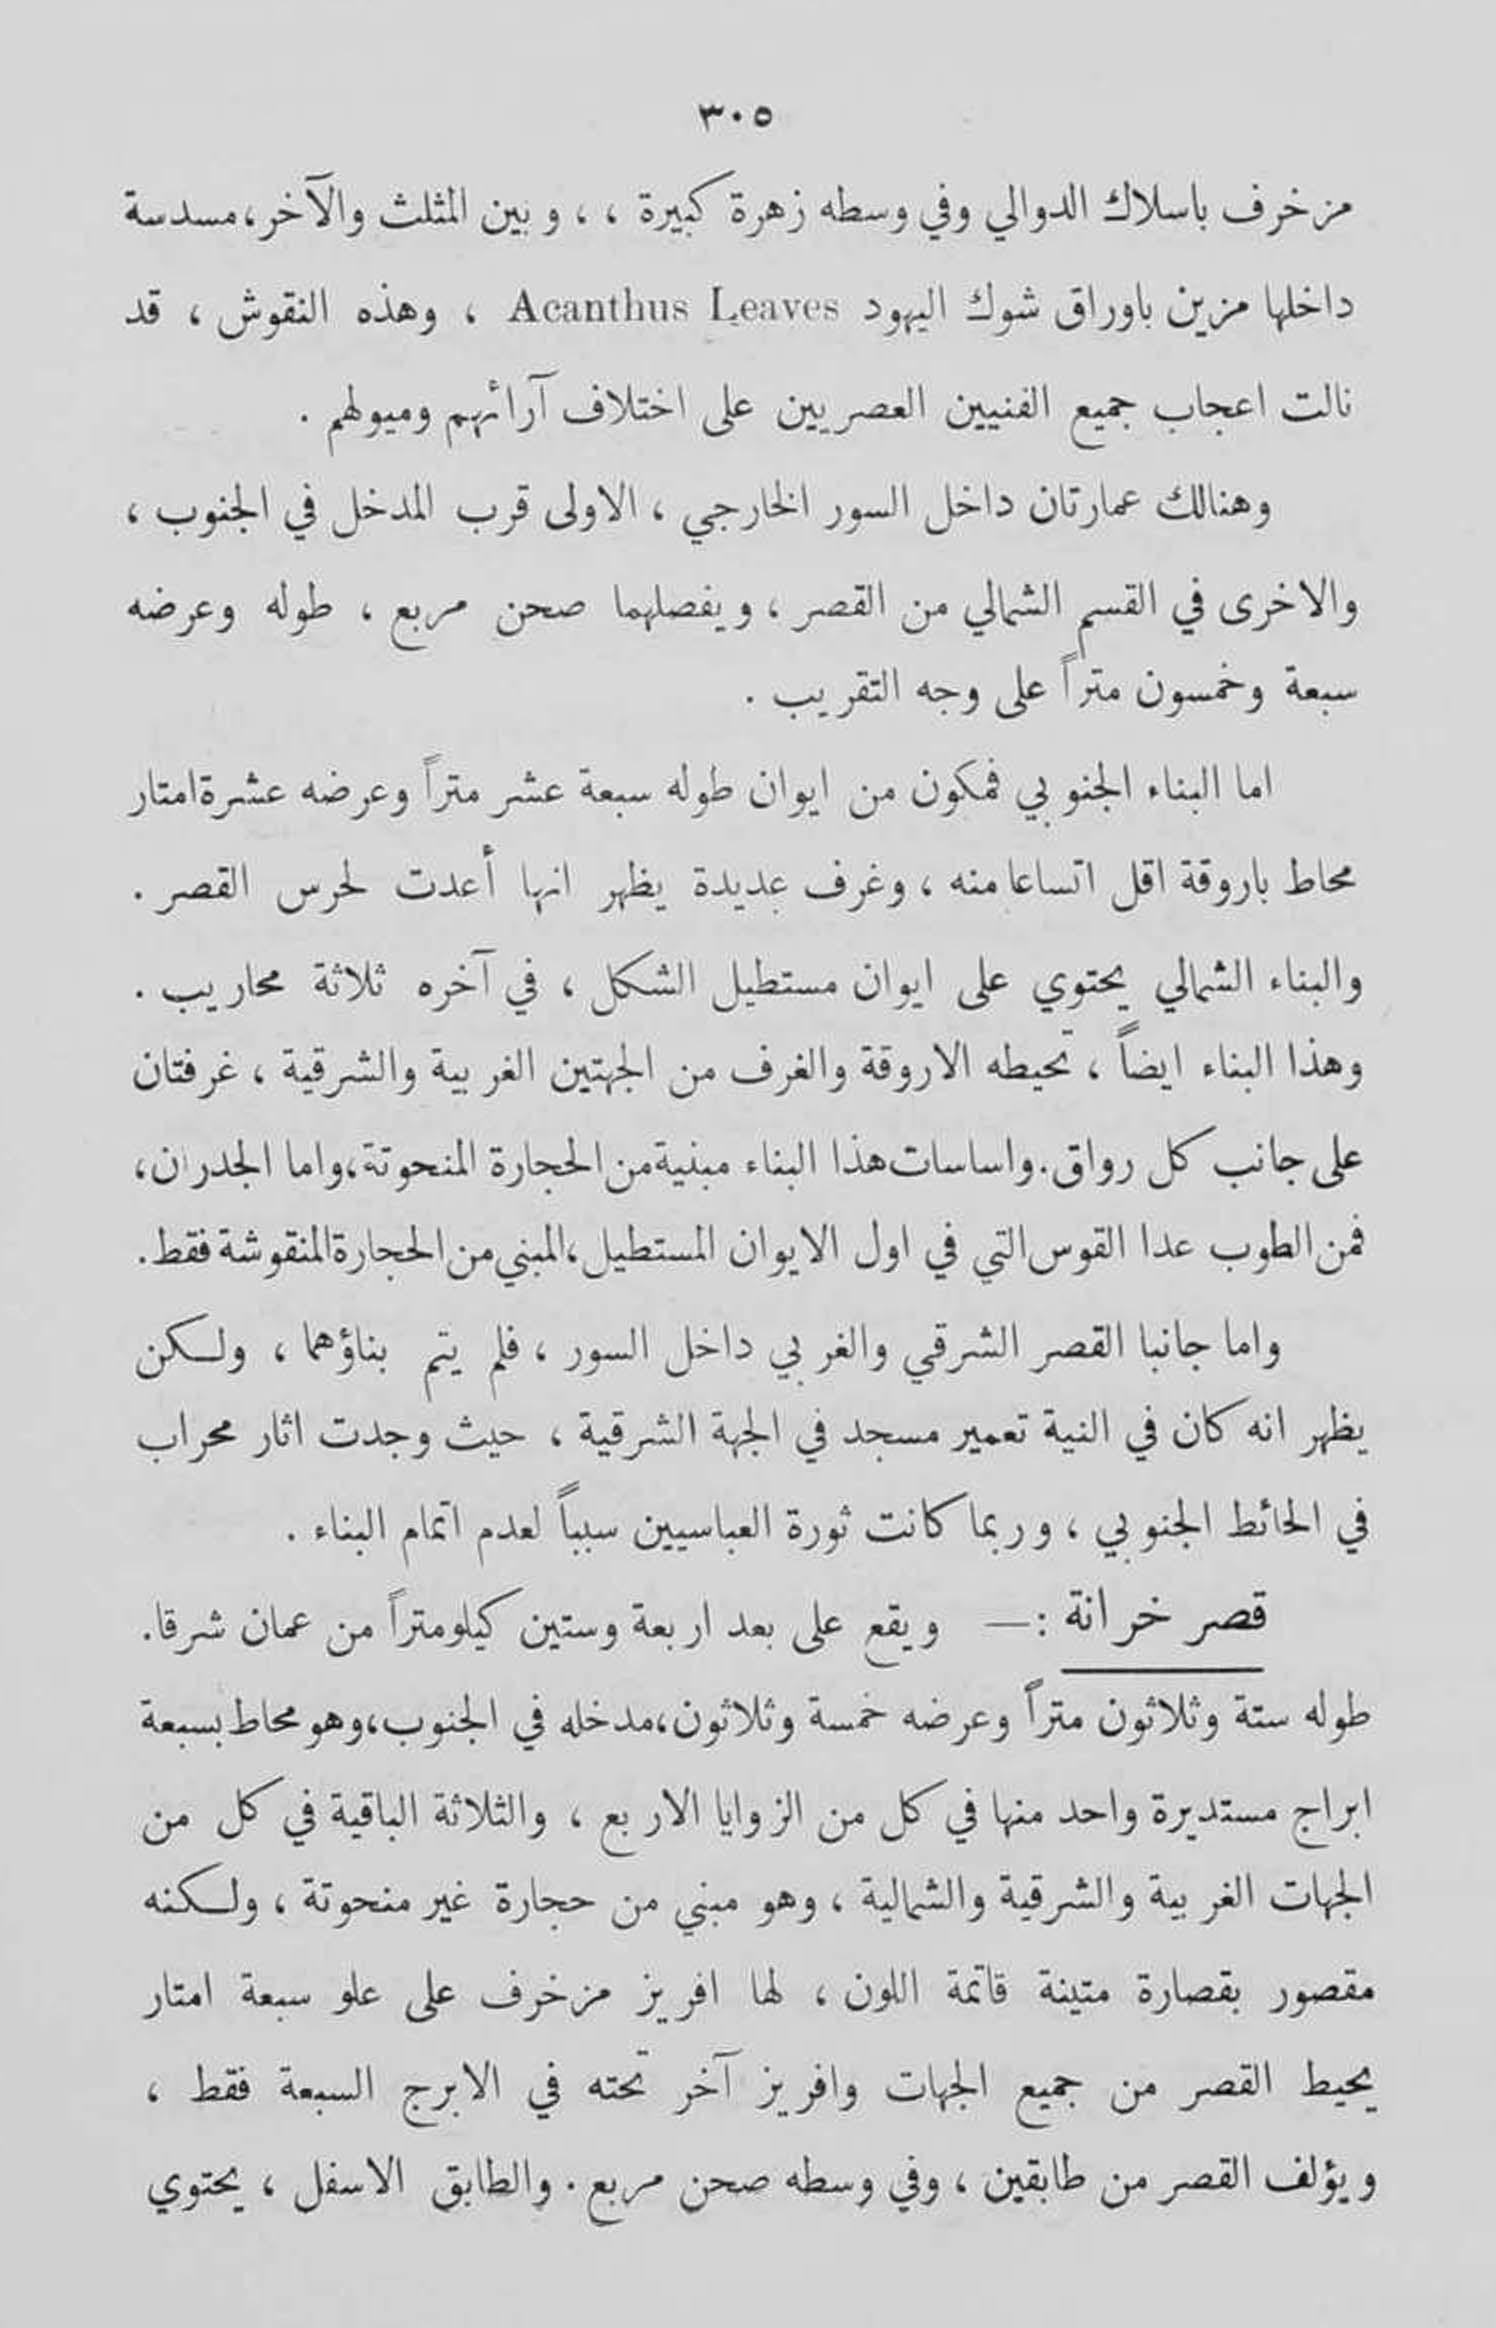 ٣٠٥
مزخرف باسلاك الدوالي وفي وسطه زهرة كبيرة ، ، وبين المثلث والآخر، مسدسة
داخلها مزين باوراق شوك اليهود Acanthus Leaves ، وهذه النقوش ، قد
نالت اعجاب جميع الفنيين العصريين على اختلاف آرائهم وميولهم .
وهنالك عمارتان داخل السور الخارجي ، الاولى قرب المدخل في الجنوب ،
والاخرى في القسم الشمالي من القصر ، ويفصلهما صحن مربع ، طوله وعرضه
سبعة وخمسون متراً على وجه التقريب .
اما البناء الجنوبي فمكون من ايوان طوله سبعة عشر متراً وعرضه عشرة امتار
محاط باروقة اقل اتساعا منه ، وغرف عديدة يظهر انها أعدت لحرس القصر .
والبناء الشمالي يحتوي على ايوان مستطيل الشكل ، في آخره ثلاثة محاريب .
وهذا البناء ايضاً ، تحيطه الاروقة والغرف من الجهتين الغربية والشرقية ، غرفتان
على جانب كل رواق. واساسات هذا البناء مبنية من الحجارة المنحوتة، واما الجدران،
فمن الطوب عدا القوس التي في اول الايوان المستطيل، المبني من الحجارة المنقوشة فقط.
واما جانبا القصر الشرقي والغربي داخل السور ، فلم يتم بناؤهما ، ولكن
يظهر انه كان في النية تعمير مسجد في الجهة الشرقية ، حيث وجدت اثار محراب
في الحائط الجنوبي ، وربما كانت ثورة العباسيين سبباً لعدم اتمام البناء .
قصر خرانة :— ويقع على بعد اربعة وستين كيلومتراً من عمان شرقا.
طوله ستة وثلاثون متراً وعرضه خمسة وثلاثون، مدخله في الجنوب، وهو محاط بسبعة
ابراج مستديرة واحد منها في كل من الزوايا الاربع ، والثلاثة الباقية في كل من
الجهات الغربية والشرقية والشمالية ، وهو مبني من حجارة غير منحوتة ، ولكنه
مقصور بقصارة متينة قاتمة اللون ، لها افريز مزخرف على علو سبعة امتار
يحيط القصر من جميع الجهات وافريز آخر تحته في الابرج السبعة فقط ،
ويؤلف القصر من طابقين ، وفي وسطه صحن مربع . والطابق الاسفل ، يحتوي